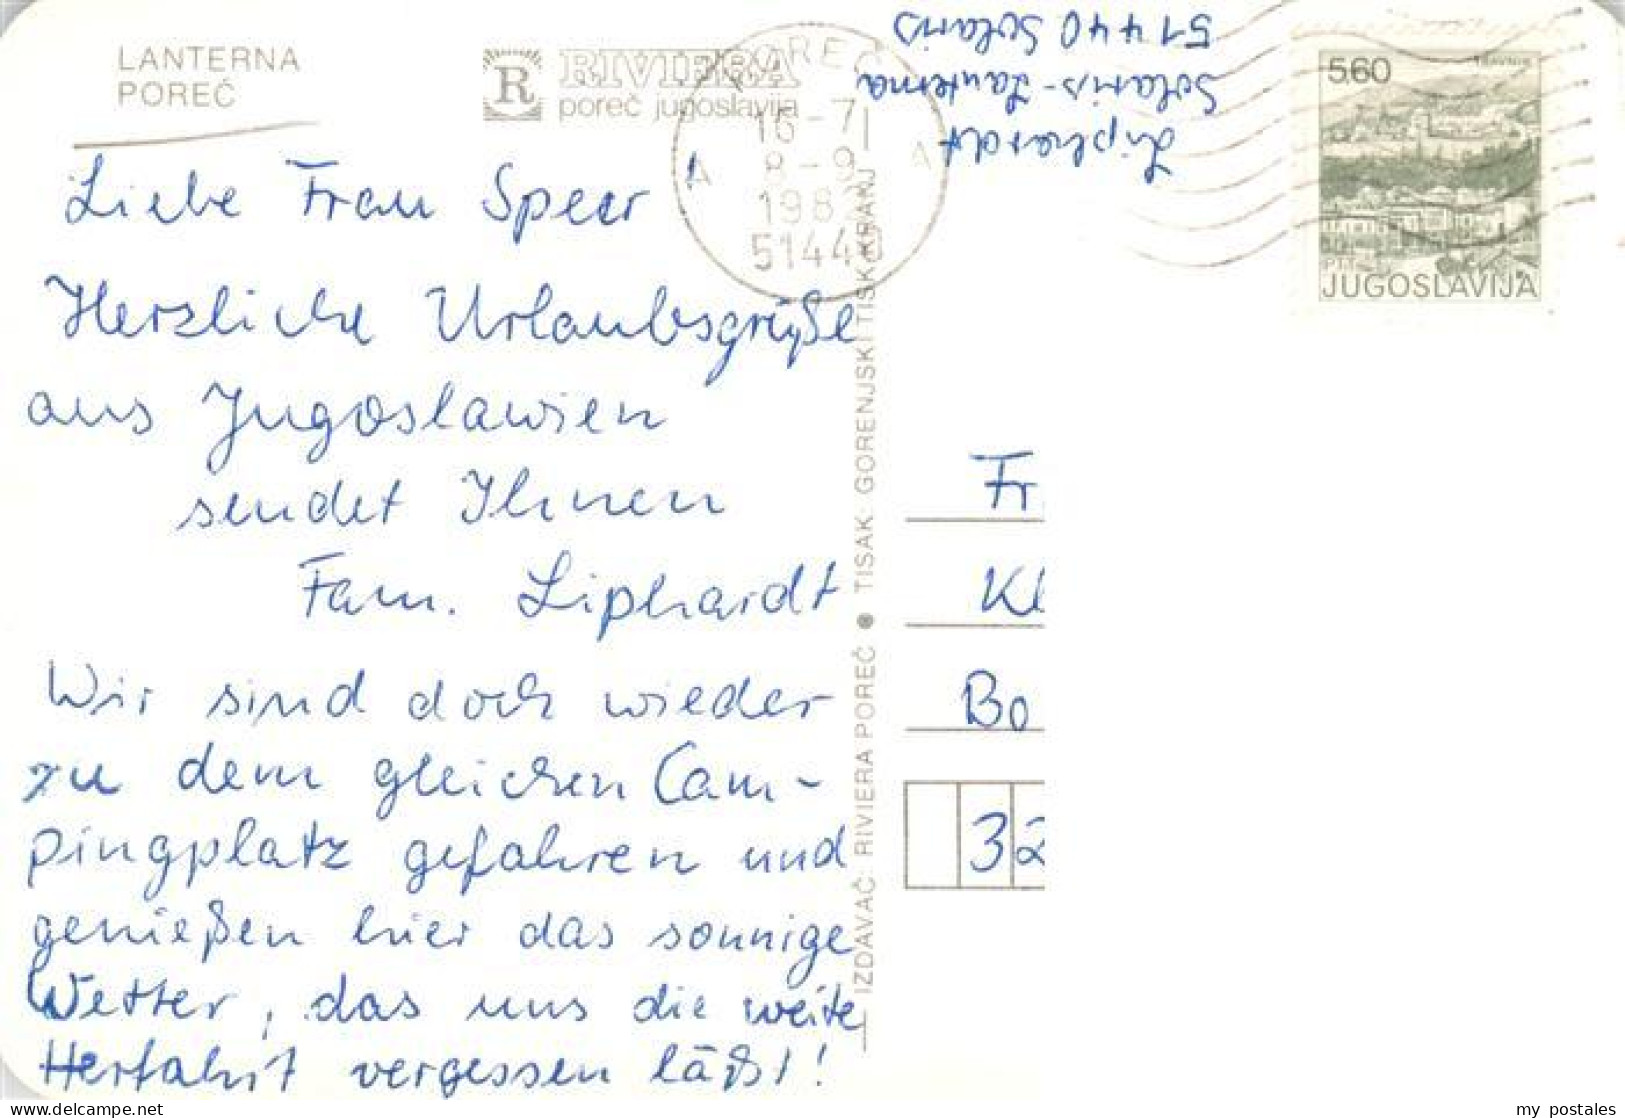 LANTERNA
POREČ
R
RIVIERA
poreč jugoslavija
POREČ
16-7
8-9
198
5144
A A
Liphardt
Solaris-Lanterna
51440 Solaris
560
TRAVNIK
PTT
JUGOSLAVIJA
Liebe Frau Speer
Herzliche Urlaubsgrüße
aus Jugoslawien
sendet Ihnen
Fam. Liphardt
Wir sind doch wieder
zu dem gleichen Cam-
pingplatz gefahren und
genießen hier das sonnige
Wetter, das uns die weite
Herfahrt vergessen läßt!
IZDAVAČ: RIVIERA POREČ ● TISAK: GORENJSKI TISK KRANJ
Fr
Kl
Bo
32
my postales